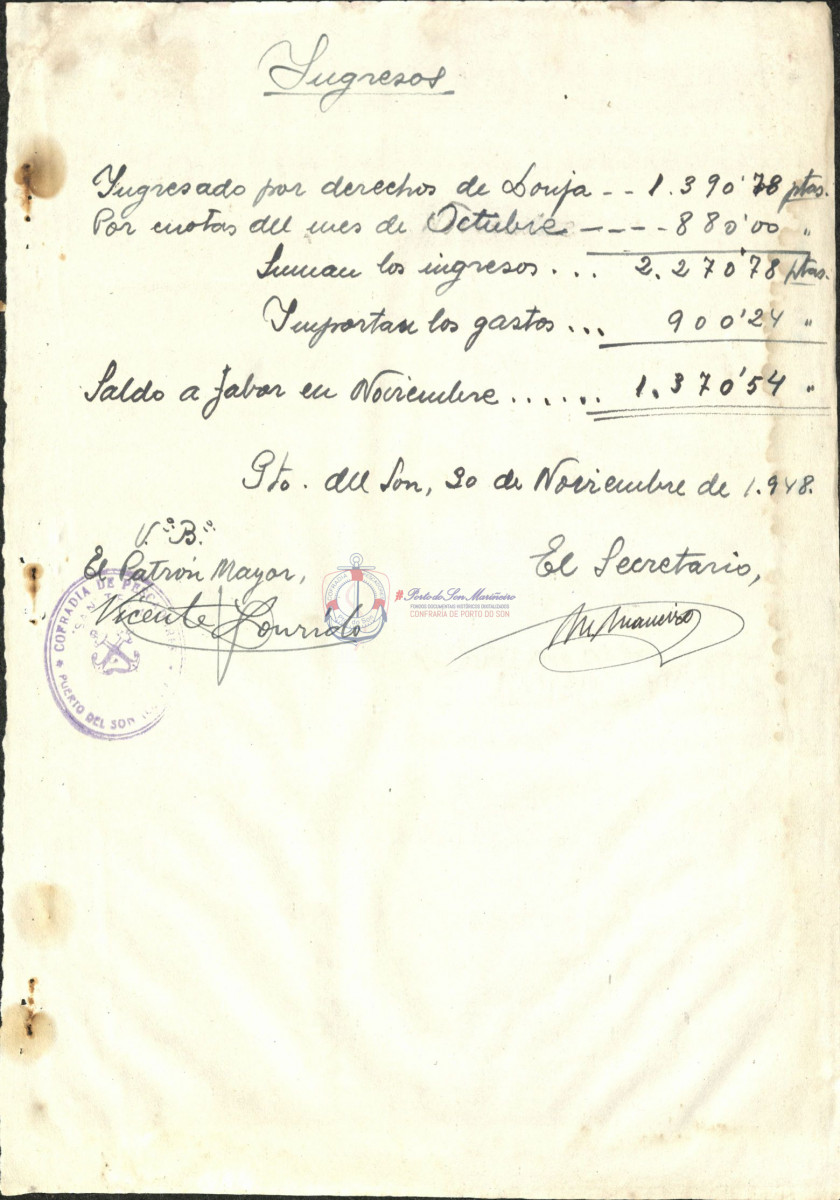 Ingresos
Ingresado por derechos de Lonja -- 1.390'78 ptas.
Por cuotas del mes de Octubre ---- 880'00 "
Suman los ingresos... 2.270'78 ptas.
Importan los gastos... 900'24 "
Saldo a fabor en Noviembre...... 1.370'54 "
Pto. del Son, 30 de Noviembre de 1.948.
V.º B.º
El Patrón Mayor,
El Secretario,
Vicente Lourido
COFRADIA DE PESCADORES
PUERTO DEL SON
#Porto do Son Mariñeiro
FONDOS DOCUMENTAIS HISTÓRICOS DIXITALIZADOS
CONFRARÍA DE PORTO DO SON